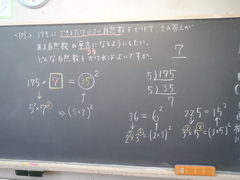 〈例〉 175にできるだけ小さい自然数をかけて、その答えが
ある自然数の2乗になるようにしたい。
どんな自然数をかければよいですか。
7
175 × 7 = 35²
5²×7 ⇒ (5×7)²
5)175
5)35
7
36 = 6²
2²×3² = (2×3)²
225 = 15²
3²×5² = (3×5)²